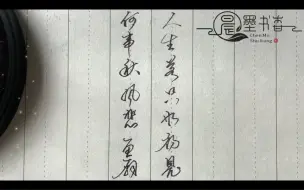 人生若只如初见
何事秋风悲画扇
晨墨书香
ChenMo
ShuXiang